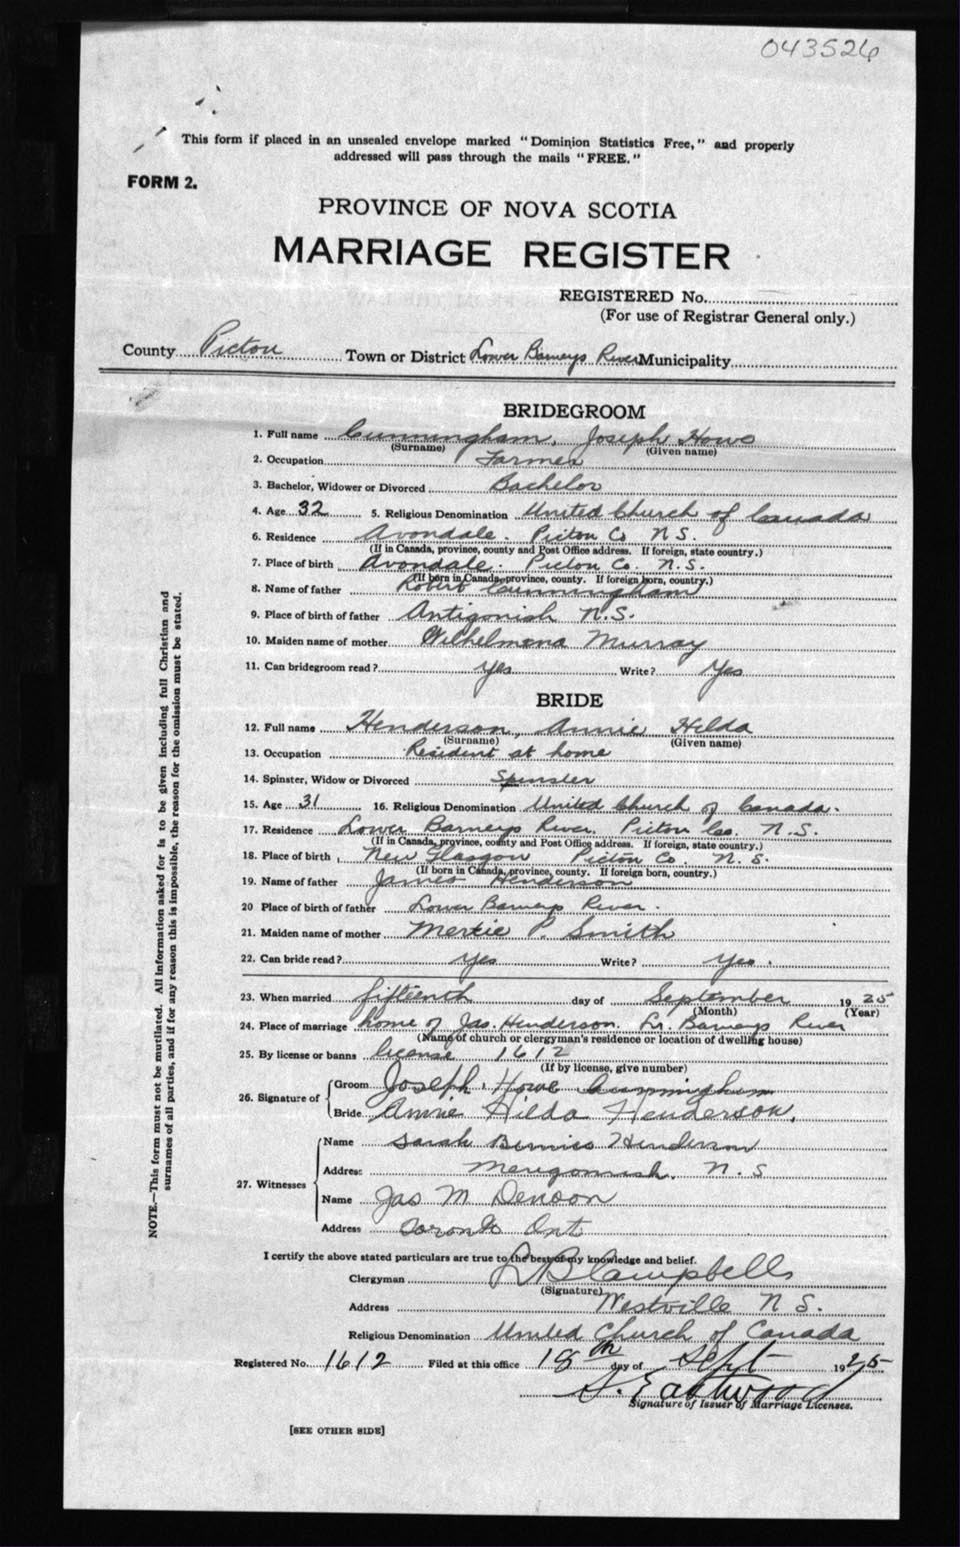 043526
This form if placed in an unsealed envelope marked "Dominion Statistics Free," and properly
addressed will pass through the mails "FREE."
FORM 2.
PROVINCE OF NOVA SCOTIA
MARRIAGE REGISTER
REGISTERED No.
(For use of Registrar General only.)
County Pictou Town or District Lower Barneys River Municipality
BRIDEGROOM
1. Full name Cunningham, Joseph Howe
(Surname) (Given name)
2. Occupation Farmer
3. Bachelor, Widower or Divorced Bachelor
4. Age 32 5. Religious Denomination United Church of Canada
6. Residence Avondale. Pictou Co N.S.
(If in Canada, province, county and Post Office address. If foreign, state country.)
7. Place of birth Avondale. Pictou Co. N.S.
(If born in Canada, province, county. If foreign born, country.)
8. Name of father Robert Cunningham
9. Place of birth of father Antigonish N.S.
10. Maiden name of mother Wilhelmena Murray
11. Can bridegroom read? yes Write? Yes
BRIDE
12. Full name Henderson, Annie Hilda
(Surname) (Given name)
13. Occupation Resident at home
14. Spinster, Widow or Divorced Spinster
15. Age 31 16. Religious Denomination United Church of Canada.
17. Residence Lower Barneys River, Pictou Co. N.S.
(If in Canada, province, county and Post Office address. If foreign, state country.)
18. Place of birth New Glasgow Pictou Co. N.S.
(If born in Canada, province, county. If foreign born, country.)
19. Name of father James Henderson
20 Place of birth of father Lower Barneys River.
21. Maiden name of mother P. Smith
22. Can bride read? yes Write? yes.
23. When married fifteenth day of September 1925
(Month) (Year)
24. Place of marriage home of Jas. Henderson. Lr. Barneys River
(Name of church or clergyman's residence or location of dwelling house)
25. By license or banns license 1612
(If by license, give number)
26. Signature of Groom Joseph Howe Cunningham
Bride Annie Hilda Henderson.
27. Witnesses Name Sarah Henderson
Address Merigomish. N.S
Name Jas M Denoon
Address Toronto Ont
I certify the above stated particulars are true to the best of my knowledge and belief.
Clergyman Campbell
(Signature)
Address Westville N S.
Religious Denomination United Church of Canada
Registered No. 1612 Filed at this office 18th day of Sept 1925
S. Eastwood
Signature of Issuer of Marriage Licenses.
[SEE OTHER SIDE]
NOTE.—This form must not be mutilated. All information asked for is to be given including full Christian and
surnames of all parties, and if for any reason this is impossible, the reason for the omission must be stated.